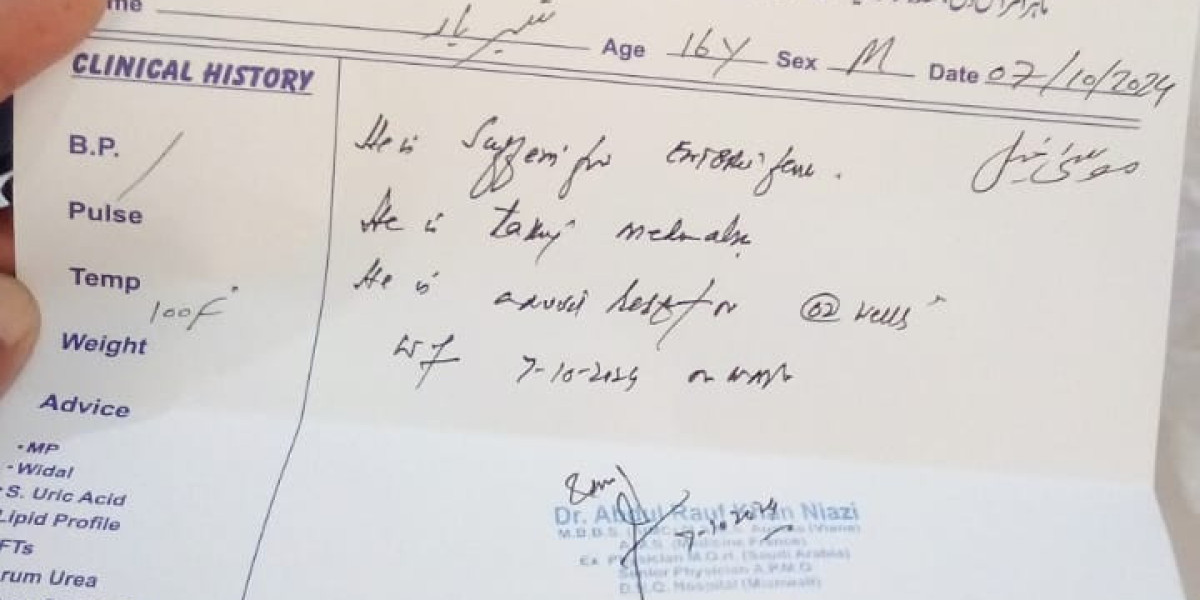 me شہریار Age 16y Sex M Date 07/10/2024
CLINICAL HISTORY
موسیٰ خیل
He is Suffering for Enteric fever.
B.P. /
Pulse
He is taking
Temp 100F°
He is advised Rest for 02 weeks
Weight
w.e.f 7-10-2024
Advice
- MP
- Widal
- S. Uric Acid
Lipid Profile
FTs
rum Urea
Dr. Abdul Rauf Khan Niazi
7-10-2024
M.B.B.S
(Medicine France)
Ex Physician M.O.H. (Saudi Arabia)
Senior Physician A.P.M.O
D.H.Q. Hospital (Mianwali)